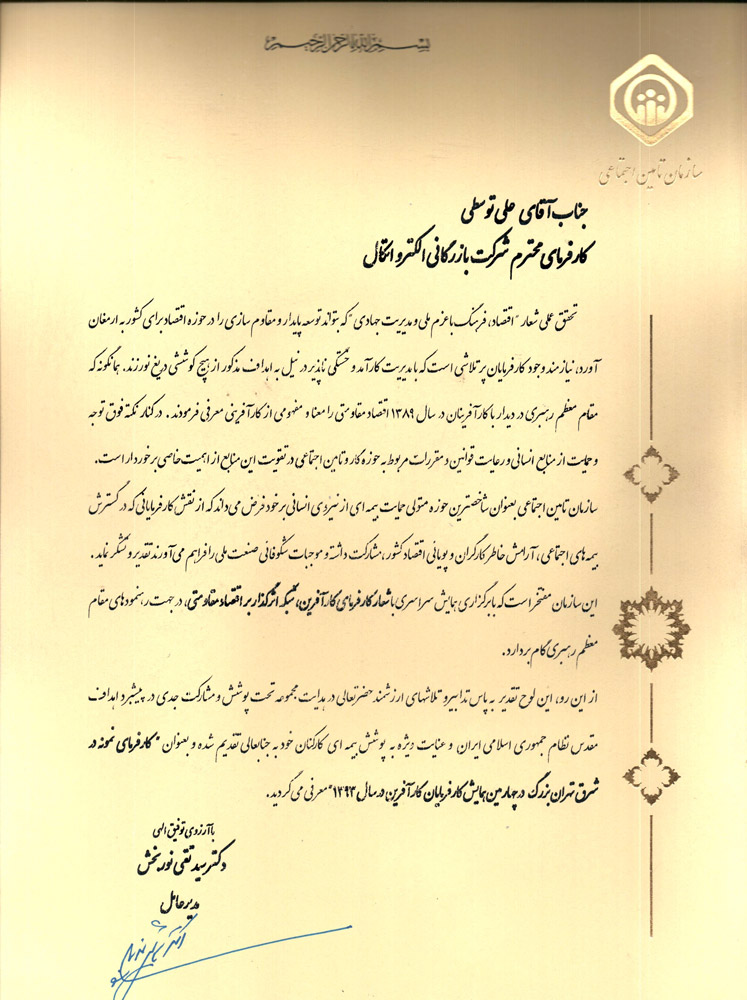 بسم الله الرحمن الرحیم
سازمان تامین اجتماعی
جناب آقای علی توسطی
کارفرمای محترم شرکت بازرگانی الکترو اتکال
تحقق عملی شعار "اقتصاد، فرهنگ با عزم ملی و مدیریت جهادی" که بتواند توسعه پایدار و مقاوم سازی را در حوزه اقتصاد برای کشور به ارمغان
آورد، نیازمند وجود کارفرمایان پر تلاشی است که با مدیریت کارآمد و خستگی ناپذیر در نیل به اهداف مذکور از هیچ کوششی دریغ نورزند. همانگونه که
مقام معظم رهبری در دیدار با کارآفرینان در سال ۱۳۸۹ اقتصاد مقاومتی را معنا و مفهومی از کارآفرینی معرفی فرمودند. در کنار نکته فوق توجه
و حمایت از منابع انسانی و رعایت قوانین و مقررات مربوط به حوزه کار و تامین اجتماعی در تقویت این منابع از اهمیت خاصی برخوردار است.
سازمان تامین اجتماعی بعنوان شاخصترین حوزه متولی حمایت بیمه ای از نیروی انسانی بر خود فرض می داند که از نقش کارفرمایانی که در گسترش
بیمه های اجتماعی، آرامش خاطر کارگران و پویائی اقتصاد کشور، مشارکت داشته و موجبات شکوفائی صنعت ملی را فراهم می آورند تقدیر و تشکر نماید.
این سازمان مفتخر است که با برگزاری همایش سراسری با شعار کارفرمای کارآفرین، شبکه اثرگذار بر اقتصاد مقاومتی، در جهت رهنمودهای مقام
معظم رهبری گام بردارد.
از این رو، این لوح تقدیر به پاس تدابیر و تلاشهای ارزشمند حضرتعالی در هدایت مجموعه تحت پوشش و مشارکت جدی در پیشبرد اهداف
مقدس نظام جمهوری اسلامی ایران و عنایت ویژه به پوشش بیمه ای کارکنان خود به جنابعالی تقدیم شده و بعنوان "کارفرمای نمونه در
شرق تهران بزرگ در چهارمین همایش کارفرمایان کارآفرین در سال ۱۳۹۳" معرفی می گردید.
با آرزوی توفیق الهی
دکتر سید تقی نوربخش
مدیر عامل